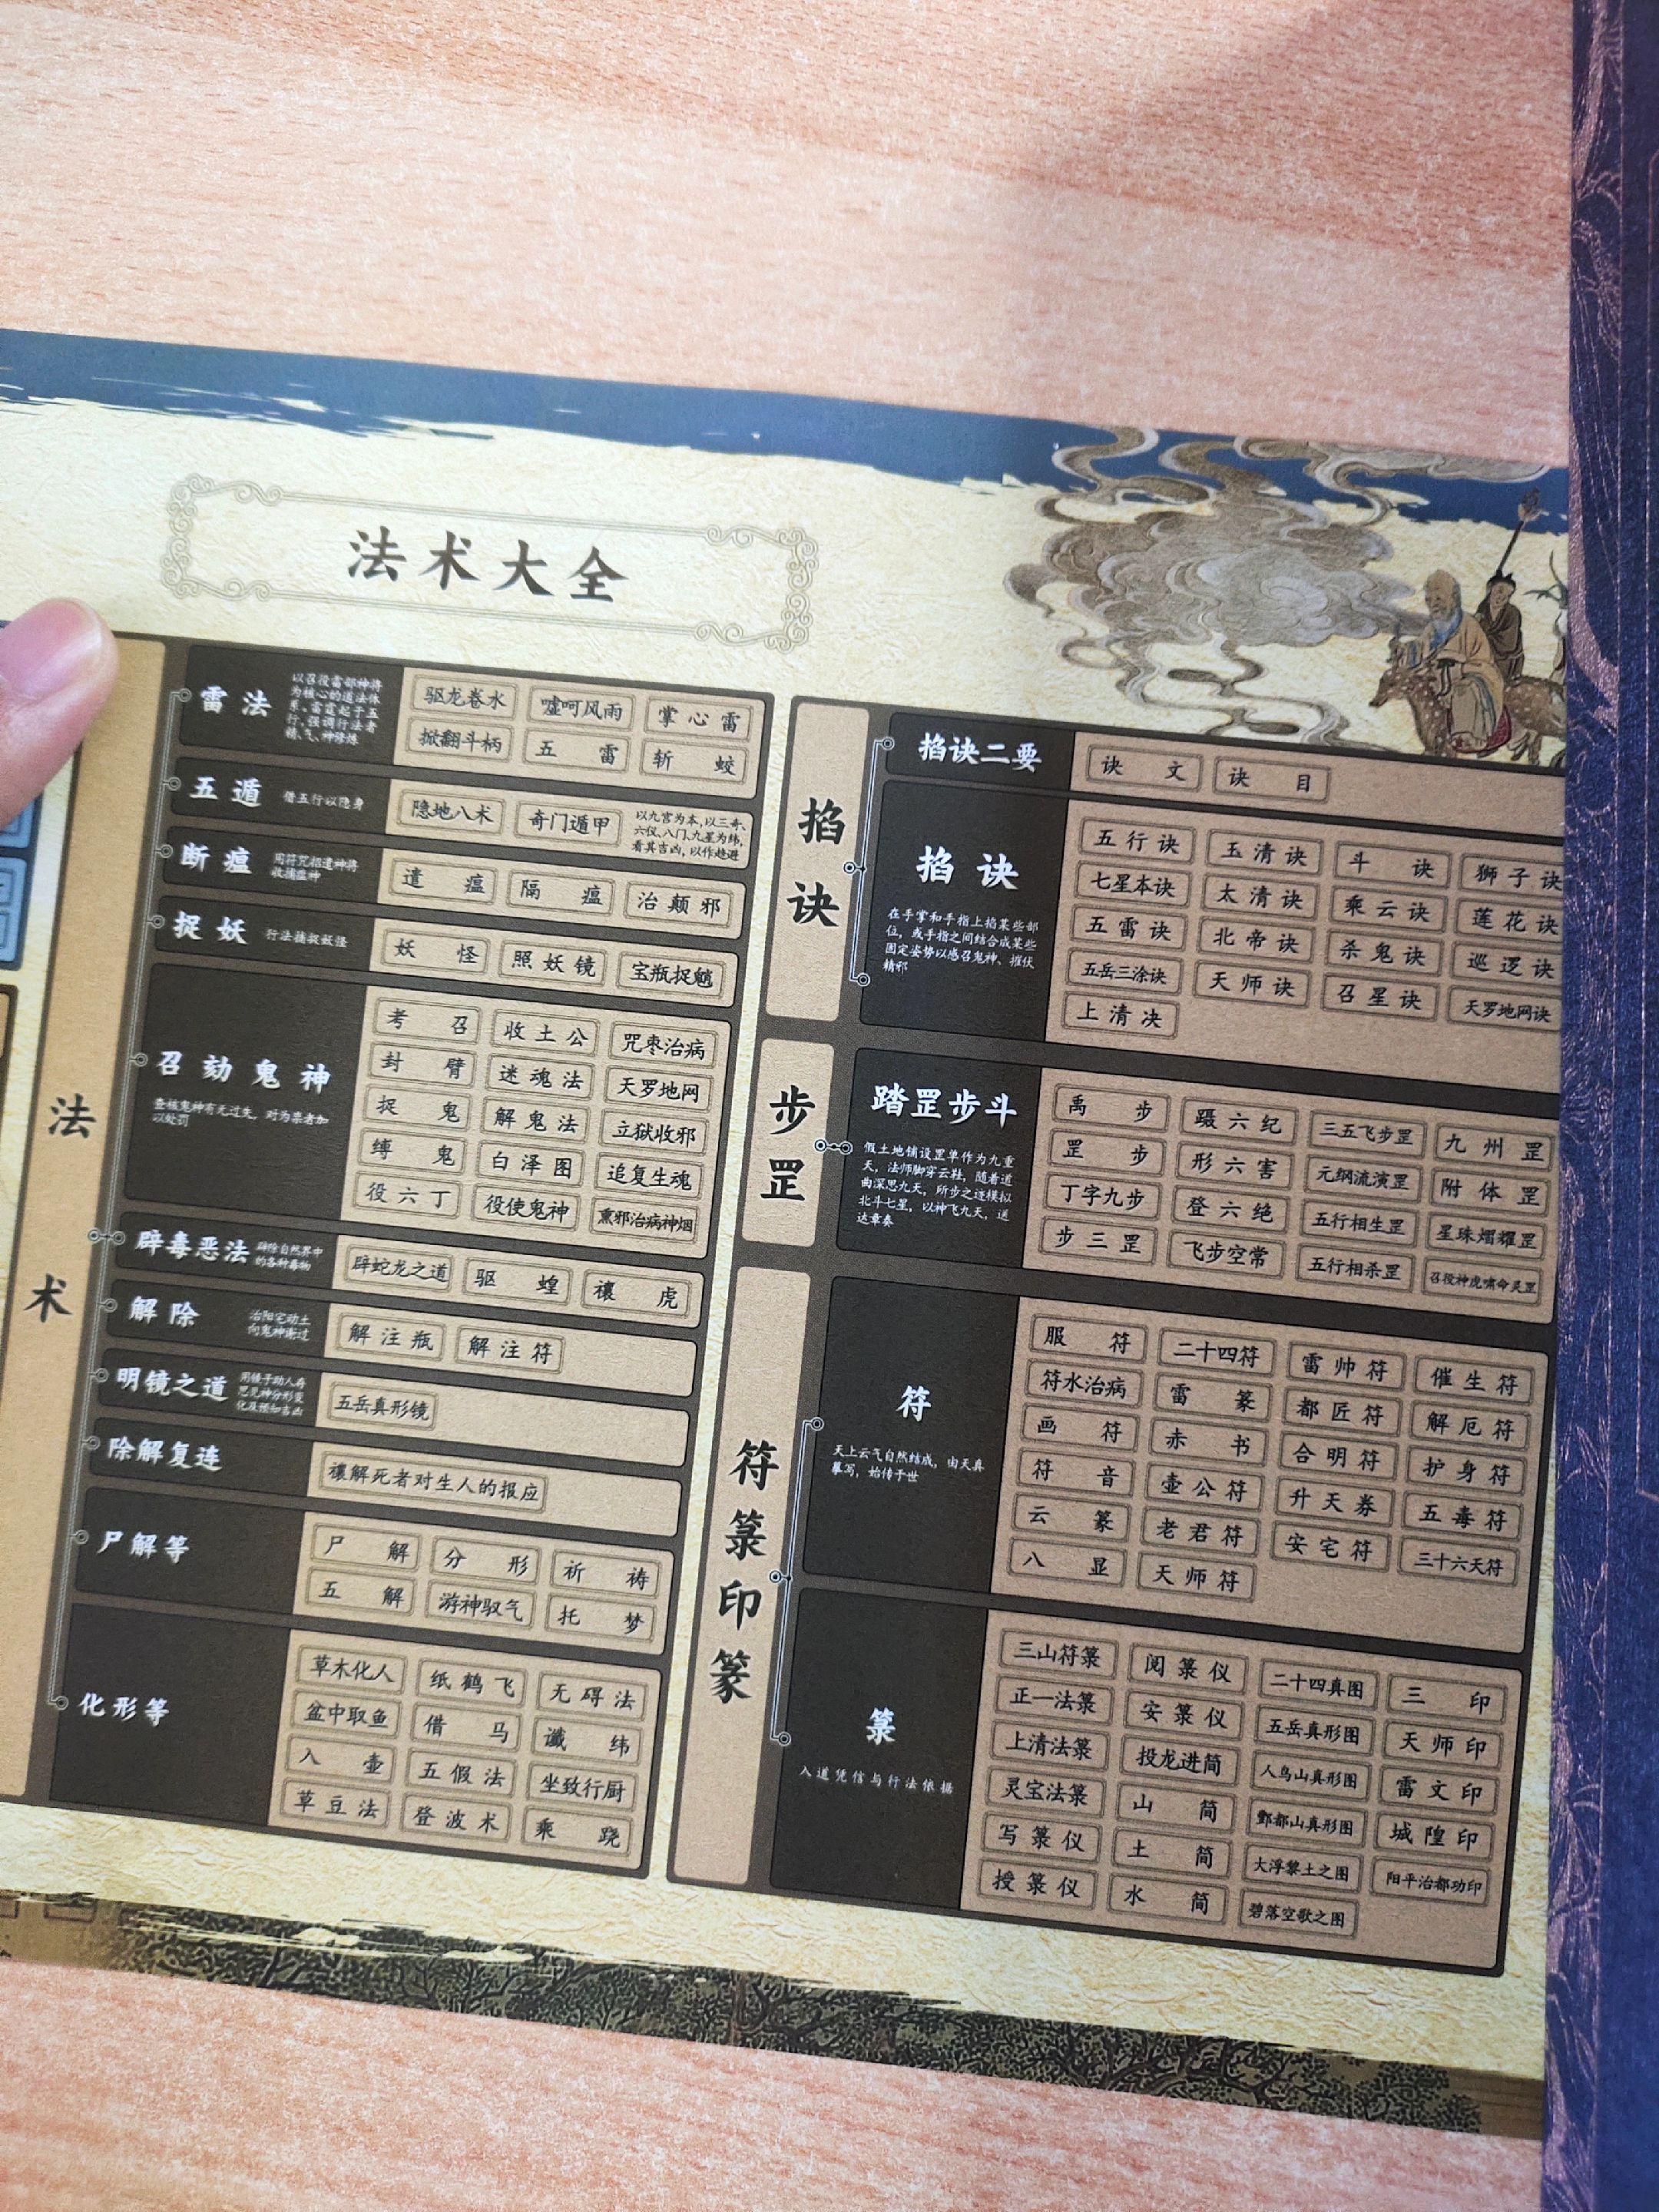 法术大全
法术
雷法
以召役雷部神将
为核心的道法体
系、雷霆起于五
行、强调行法者
精、气、神修炼
驱龙卷水 嘘呵风雨 掌心雷
掀翻斗柄 五雷 斩蛟
五遁 借五行以隐身
隐地八术 奇门遁甲
以九宫为本,以三奇、
六仪、八门、九星为纬,
看其吉凶,以作趋避
断瘟
用符咒招遣神将
收捕瘟神
遣瘟 隔瘟 治颠邪
捉妖 行法捕捉妖怪
妖怪 照妖镜 宝瓶捉魈
召劾鬼神
查核鬼神有无过失,对为祟者加
以处罚
考召 收土公 咒枣治病
封臂 迷魂法 天罗地网
捉鬼 解鬼法 立狱收邪
缚鬼 白泽图 追复生魂
役六丁 役使鬼神 熏邪治病神烟
辟毒恶法
辟除自然界中
的各种毒物
辟蛇龙之道 驱蝗 禳虎
解除
治阳宅动土
向鬼神谢过
解注瓶 解注符
明镜之道
用镜子助人存
思见神分形变
化及预知吉凶
五岳真形镜
除解复连
禳解死者对生人的报应
尸解等
尸解 分形 祈祷
五解 游神驭气 托梦
化形等
草木化人 纸鹤飞 无碍法
盆中取鱼 借马 谶纬
入壶 五假法 坐致行厨
草豆法 登波术 乘跷
掐诀
掐诀二要
诀文 诀目
掐诀
在手掌和手指上掐某些部
位，或手指之间结合成某些
固定姿势以感召鬼神、摧伏
精邪
五行诀 玉清诀 斗诀 狮子诀
七星本诀 太清诀 乘云诀 莲花诀
五雷诀 北帝诀 杀鬼诀 巡逻诀
五岳三涂诀 天师诀 召星诀 天罗地网诀
上清决
步罡
踏罡步斗
假土地铺设罡单作为九重
天，法师脚穿云鞋，随着道
曲深思九天，所步之迹模拟
北斗七星，以神飞九天，道
达章奏
禹步 蹑六纪 三五飞步罡 九州罡
罡步 形六害 元纲流演罡 附体罡
丁字九步 登六绝 五行相生罡 星珠熠耀罡
步三罡 飞步空常 五行相杀罡 召役神虎啸命灵罡
符箓印篆
符
天上云气自然结成，由天真
摹写，始传于世
服符 二十四符 雷帅符 催生符
符水治病 雷篆 都匠符 解厄符
画符 赤书 合明符 护身符
符音 壶公符 升天券 五毒符
云篆 老君符 安宅符 三十六天符
八显 天师符
箓
入道凭信与行法依据
三山符箓 阅箓仪 二十四真图 三印
正一法箓 安箓仪 五岳真形图 天师印
上清法箓 投龙进简 人鸟山真形图 雷文印
灵宝法箓 山简 酆都山真形图 城隍印
写箓仪 土简 大浮黎土之图 阳平治都功印
授箓仪 水简 碧落空歌之图